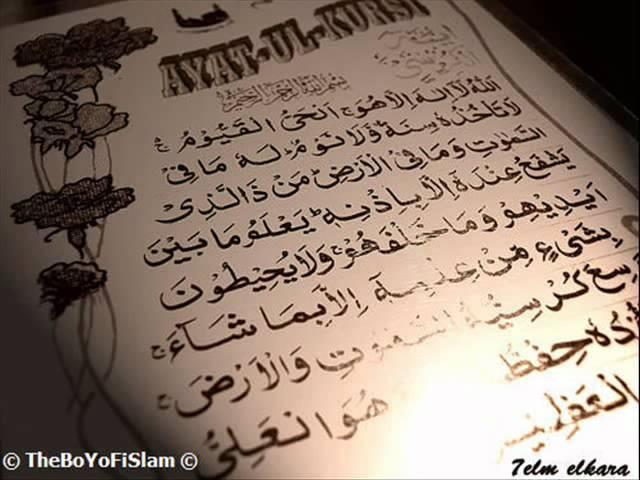 AYAT-UL-KURSI
آية الكرسي
بسم الله الرحمن الرحيم
اَللّٰهُ لَاۤ اِلٰهَ اِلَّا هُوَ ۚ اَلْحَیُّ الْقَیُّوْمُ ۚ
لَا تَاْخُذُهٗ سِنَةٌ وَّلَا نَوْمٌ ؕ لَهٗ مَا فِی
السَّمٰوٰتِ وَمَا فِی الْاَرْضِ ؕ مَنْ ذَا الَّذِیْ
یَشْفَعُ عِنْدَهٗۤ اِلَّا بِاِذْنِهٖ ؕ یَعْلَمُ مَا بَیْنَ
اَیْدِیْهِمْ وَمَا خَلْفَهُمْ ۚ وَلَا یُحِیْطُوْنَ
بِشَیْءٍ مِّنْ عِلْمِهٖۤ اِلَّا بِمَا شَآءَ ۚ
سِعَ كُرْسِیُّهُ السَّمٰوٰتِ وَالْاَرْضَ ۚ
ُٔدُهٗ حِفْظُ هُوَ الْعَلِیُّ
الْعَظِیْم
© TheBoYoFiSlam ©
7elm elkara